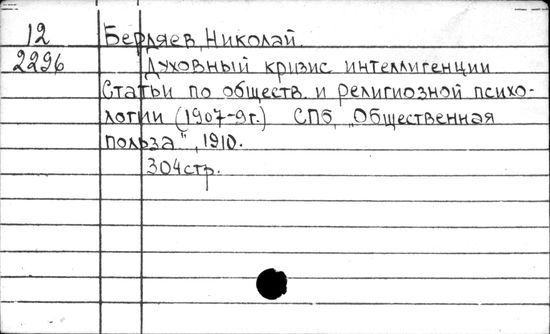 12 Бердяев, Николай.
2296 Духовный кризис интеллигенции
Статьи по обществ. и религиозной психо-
логии (1907-9г.) СПб, „Общественная
польза", 1910.
304стр.